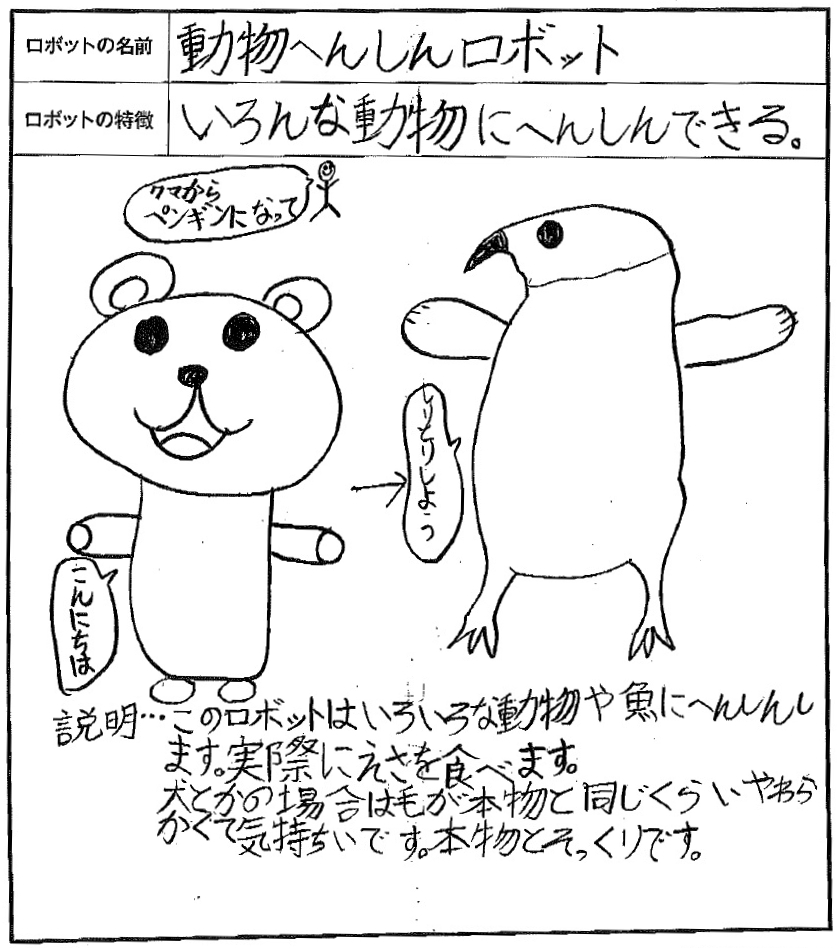 ロボットの名前
動物へんしんロボット
ロボットの特徴
いろんな動物にへんしんできる。
クマから
ペンギンになって
しりとりしよう
こんにちは
説明…このロボットはいろいろな動物や魚にへんしんし
ます。実際にえさを食べます。
犬とかの場合は毛が本物と同じくらいやわら
かくて気持ちいいです。本物とそっくりです。